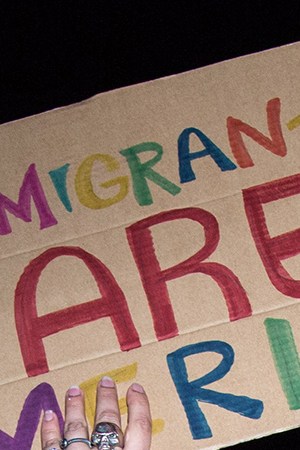 MIGRANT
ARE
MERI